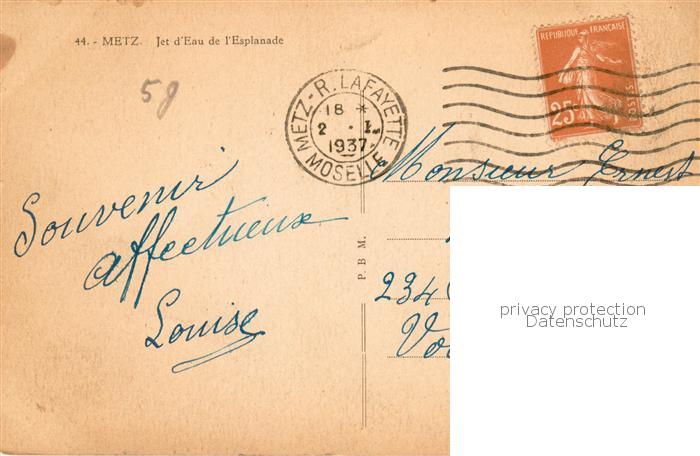 44. - METZ. Jet d'Eau de l'Esplanade
REPUBLIQUE FRANÇAISE
25c
POSTES
METZ - R. LAFAYETTE
18 *
2 - I
1937
MOSELLE
58
Souvenir
affectueux
Louise
P. B. M.
Monsieur Ernest
234
Vo
privacy protection
Datenschutz